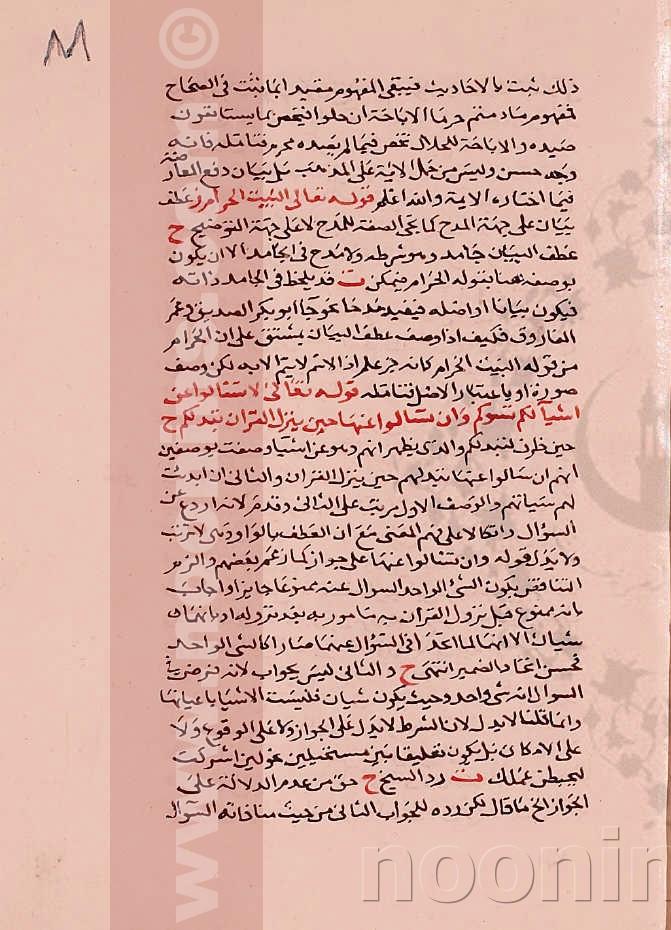 ذلك ثبت بالاحاديث فيبقى المفهوم مقيد ابما ثبت فى الصحاح
فمفهوم مادمتم حرما الاباحة ان حلوا فيخص بما يستانفون
صيده والاباحة للحلال تخص فيما لم يصده محرم فتامله فانه
وجه حسن وليس من حمل الاية على المذهب بل بيان دفع المعارضة
فيما اختاره الاية والله اعلم قوله تعالى البيت الحرام ز عطف
بيان على جهة المدح كما تجى الصفة للمدح لا على جهة التوضيح ح
عطف البيان جامد وهو شرطه ولا مدح فى الجامد الا ان يكون
بوصفه هنا بقوله الحرام فيمكن ت قد يلحظ فى الجامد ذاته
فيكون بيانا او اصله فيفيد مدحا نحو جا ابو بكر الصديق وعمر
الفاروق فكيف اذا وصف عطف البيان بمشتق على ان الحرام
من قوله البيت الحرام كانه جزء علم اذ الاسم لا يتم الا به لكن وصف
صورة او باعتبار الاصل فتامله قوله تعالى لا تسالوا عن
اشيآ ان تبد لكم تسؤكم وان تسالوا عنها حين ينزل القران تبد لكم ح
حين ظرف لتبد لكم والذى يظهر انهم نهوا عن اشيا وصفت بوصفين
انهم ان سالوا عنها تبد لهم حين ينزل القران والثانى ان ابديت
لهم سياتهم والوصف الاول مرتب على الثانى وقدم لانه اردع عن
السؤال واتكالا على فهم المعنى مع ان العطف بالواو وهى لا ترتب
ولا يدل قوله وان تسالوا عنها على جواز كما زعم بعضهم والزم
التناقض بكون الشى الواحد السوال عنه ممنوعا جايزا واجاب
بانه ممنوع قبل نزول القران به مامور به بعد نزوله او بانهما
شيان الا انهما لما اتحدا فى السؤال عنهما صارا كالشى الواحد
فحسن اتحاد الضمير انتهى ح والثانى ليس بجواب لانه فرض
السوال انه شى واحد وحيث يكون شيان فليست الاشيا باعيانها
وانما قلنا لا يدل لان الشرط لا يدل على الجواز ولا على الوقوع ولا
على الامكان بل يكون تعليقا بين مستحيلين نحو لئن اشركت
ليحبطن عملك ت رد الشيخ ح حق من عدم الدلالة على
الجواز الخ ما قال لكن رده للجواب الثانى من حيث منافاته السؤال
www.noonin
noonin